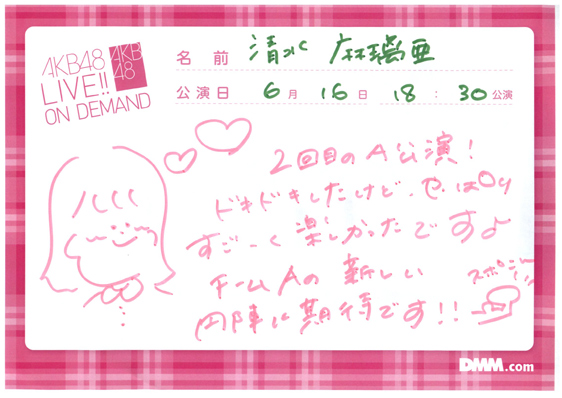 AKB48
LIVE!!
ON DEMAND
AKB
48
名前 清水 麻璃亜
公演日 6月16日 18:30公演
2回目のA公演!
ドキドキしたけど、やっぱり
すご〜く楽しかったです♪
チームAの新しい
円陣に期待です!!
DMM.com